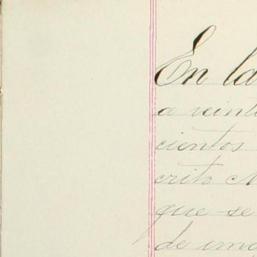 En la
a veint
cientos
crito M
que se
de una